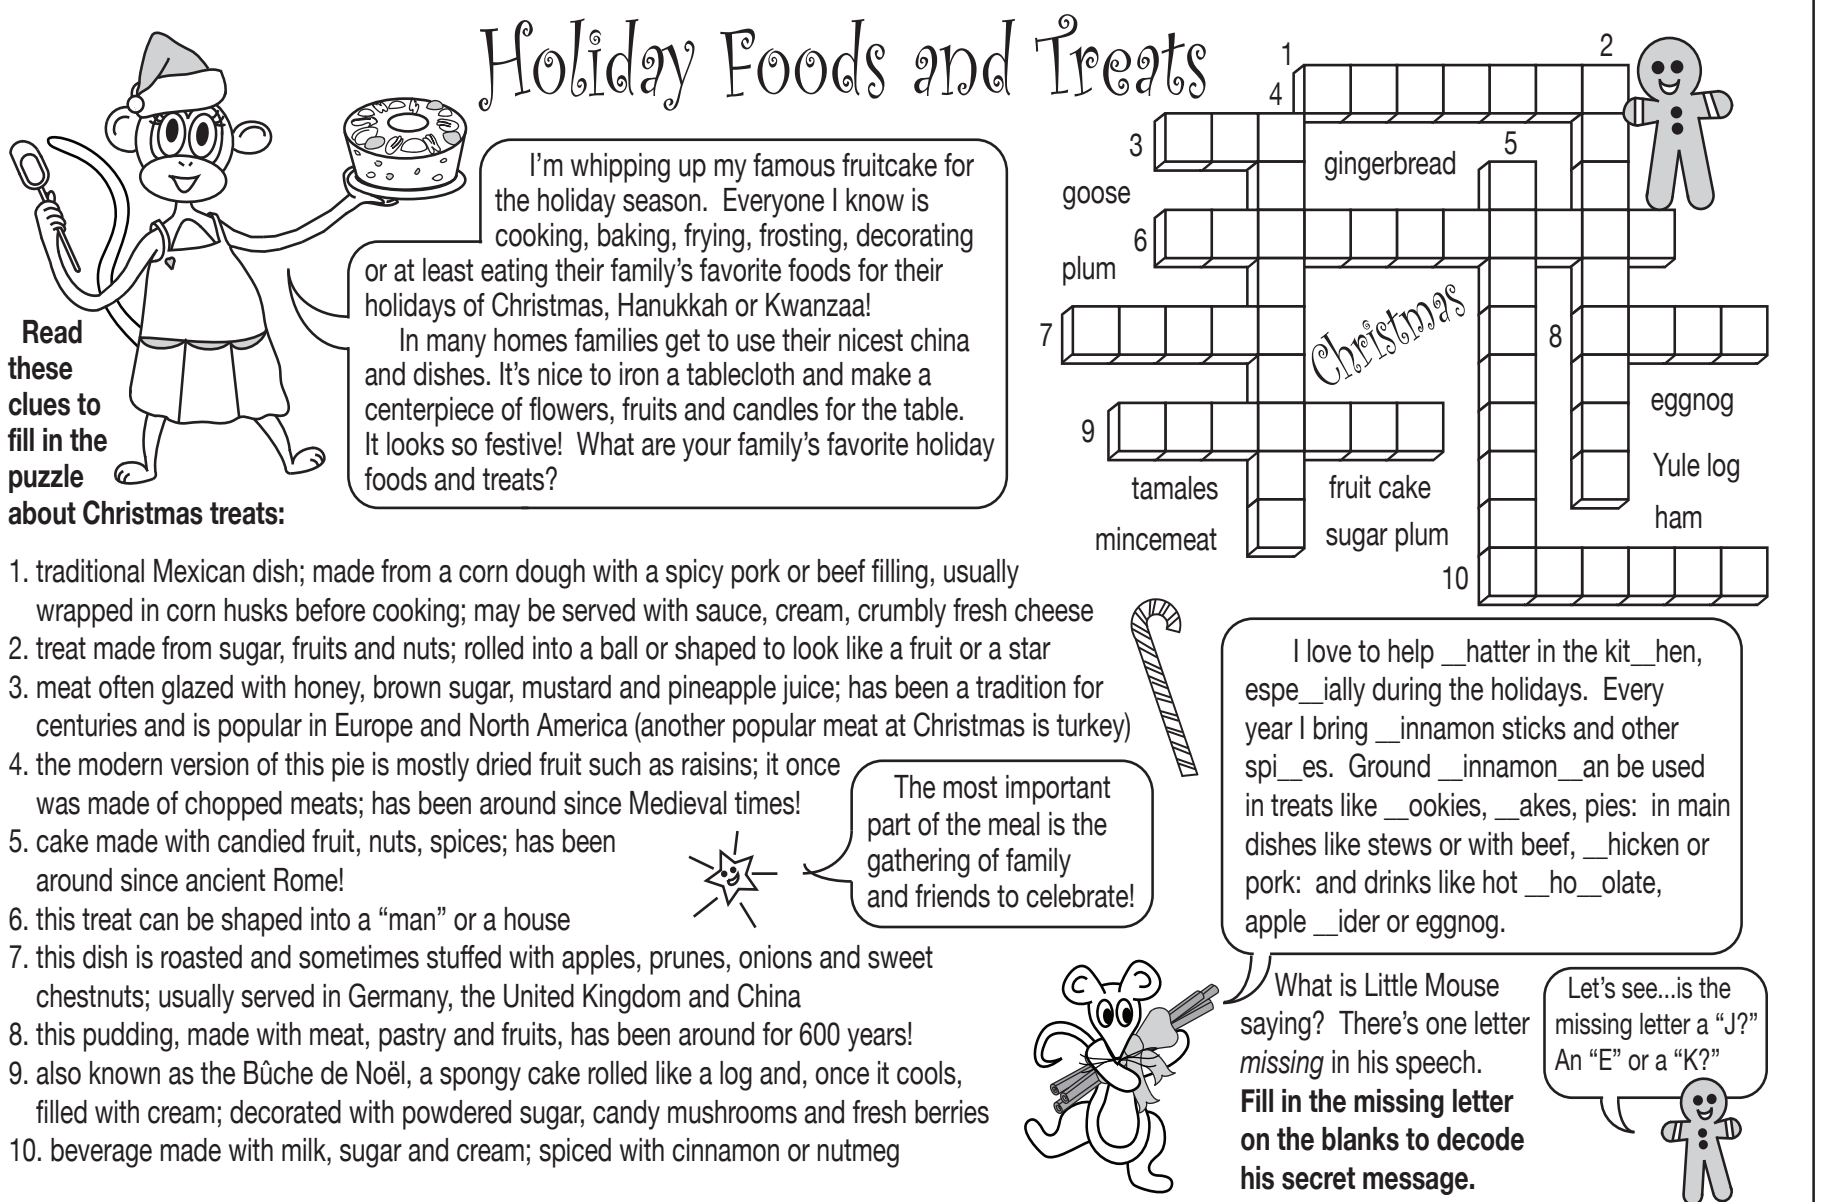 Holiday Foods and Treats
I'm whipping up my famous fruitcake for
the holiday season. Everyone I know is
cooking, baking, frying, frosting, decorating
or at least eating their family's favorite foods for their
holidays of Christmas, Hanukkah or Kwanzaa!
In many homes families get to use their nicest china
and dishes. It's nice to iron a tablecloth and make a
centerpiece of flowers, fruits and candles for the table.
It looks so festive! What are your family's favorite holiday
foods and treats?
Read
these
clues to
fill in the
puzzle
about Christmas treats:
1
2
4
3
5
gingerbread
goose
6
plum
7
Christmas
8
eggnog
9
Yule log
tamales
fruit cake
ham
mincemeat
sugar plum
10
1. traditional Mexican dish; made from a corn dough with a spicy pork or beef filling, usually
wrapped in corn husks before cooking; may be served with sauce, cream, crumbly fresh cheese
2. treat made from sugar, fruits and nuts; rolled into a ball or shaped to look like a fruit or a star
3. meat often glazed with honey, brown sugar, mustard and pineapple juice; has been a tradition for
centuries and is popular in Europe and North America (another popular meat at Christmas is turkey)
4. the modern version of this pie is mostly dried fruit such as raisins; it once
was made of chopped meats; has been around since Medieval times!
5. cake made with candied fruit, nuts, spices; has been
around since ancient Rome!
6. this treat can be shaped into a “man” or a house
7. this dish is roasted and sometimes stuffed with apples, prunes, onions and sweet
chestnuts; usually served in Germany, the United Kingdom and China
8. this pudding, made with meat, pastry and fruits, has been around for 600 years!
9. also known as the Bûche de Noël, a spongy cake rolled like a log and, once it cools,
filled with cream; decorated with powdered sugar, candy mushrooms and fresh berries
10. beverage made with milk, sugar and cream; spiced with cinnamon or nutmeg
The most important
part of the meal is the
gathering of family
and friends to celebrate!
I love to help __hatter in the kit__hen,
espe__ially during the holidays. Every
year I bring __innamon sticks and other
spi__es. Ground __innamon__an be used
in treats like __ookies, __akes, pies: in main
dishes like stews or with beef, __hicken or
pork: and drinks like hot __ho__olate,
apple __ider or eggnog.
What is Little Mouse
saying? There's one letter
missing in his speech.
Fill in the missing letter
on the blanks to decode
his secret message.
Let's see...is the
missing letter a “J?”
An “E” or a “K?”